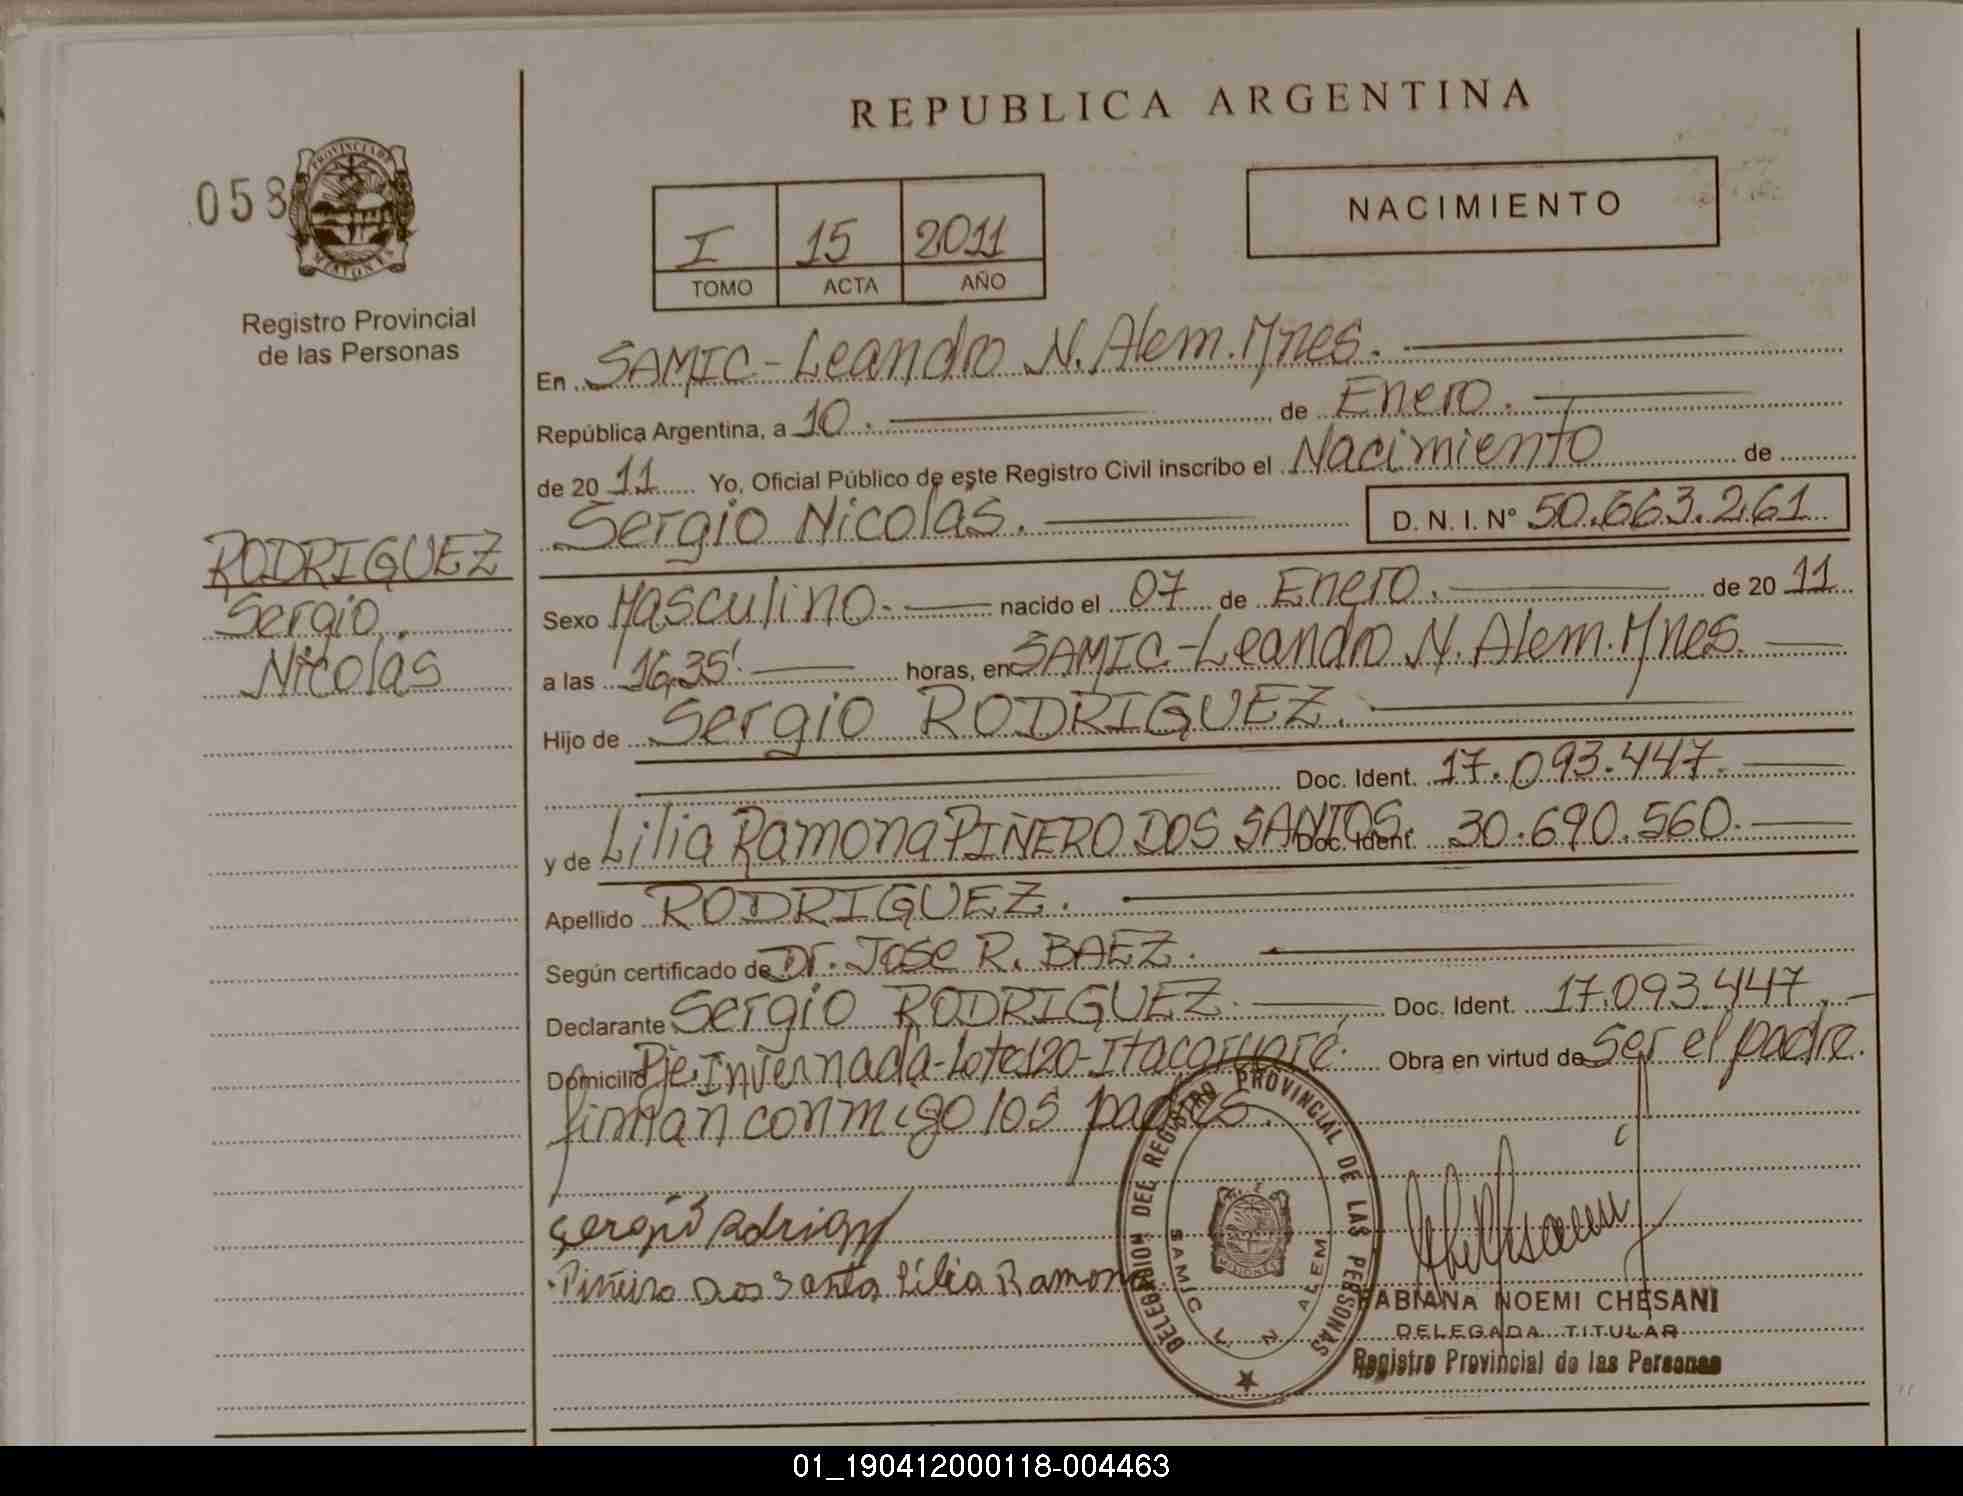 REPUBLICA ARGENTINA
058
PROVINCIA DE
MISIONES
Registro Provincial
de las Personas
I 15 2011
TOMO ACTA AÑO
NACIMIENTO
En SAMIC-Leandro N. Alem. Mnes.
República Argentina, a 10. de Enero.
de 20 11 Yo, Oficial Público de este Registro Civil inscribo el Nacimiento de
Sergio Nicolás. D. N. I. N° 50.663.261
RODRIGUEZ
Sergio
Nicolas
Sexo Masculino.- nacido el 07 de Enero. de 20 11
a las 16,35'. horas, en SAMIC-Leandro N. Alem. Mnes.
Hijo de Sergio RODRIGUEZ.
Doc. Ident. 17.093.447.
y de Lilia Ramona PIÑERO DOS SANTOS. Doc. Ident. 30.690.560.
Apellido RODRIGUEZ.
Según certificado de Dr. Jose R. BAEZ.
Declarante Sergio RODRIGUEZ. Doc. Ident. 17.093.447.
Domicilio Pje. Invernada-Lote 120-Itacaruaré. Obra en virtud de ser el padre.
firman conmigo los padres.
Piñeiro Dos Santos Lilia Ramona
DELEGACION DEL REGISTRO PROVINCIAL DE LAS PERSONAS
SAMIC L. N. ALEM
MISIONES
FABIANA NOEMI CHESANI
DELEGADA TITULAR
Registro Provincial de las Personas
01_190412000118-004463